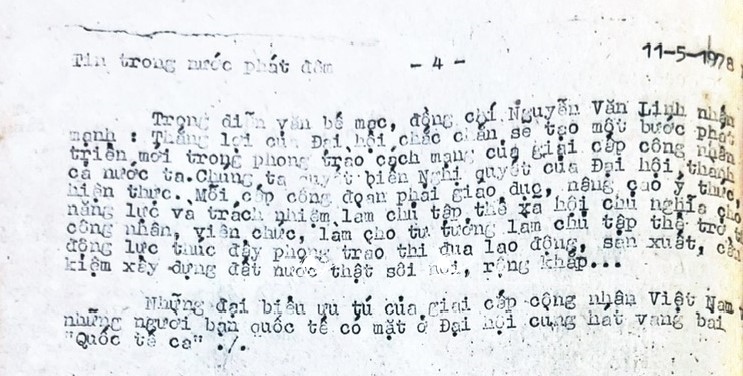 Tin trong nước phát đêm - 4 - 11-5-1978
Trong diễn văn bế mạc, đồng chí Nguyễn Văn Linh nhấn
mạnh : Thắng lợi của Đại hội chắc chắn sẽ tạo một bước phát
triển mới trong phong trào cách mạng của giai cấp công nhân
cả nước ta.Chúng ta quyết biến Nghị quyết của Đại hội thành
hiện thực. Mỗi cấp công đoàn phải giáo dục, nâng cao ý thức,
năng lực và trách nhiệm làm chủ tập thể xã hội chủ nghĩa cho
công nhân, viên chức, làm cho tư tưởng làm chủ tập thể trở t
động lực thúc đẩy phong trào thi đua lao động, sản xuất, cần
kiệm xây dựng đất nước thật sôi nổi, rộng khắp...
Những đại biểu ưu tú của giai cấp công nhân Việt Nam
những người bạn quốc tế có mặt ở Đại hội cùng hát vang bài
"Quốc tế ca" ./.